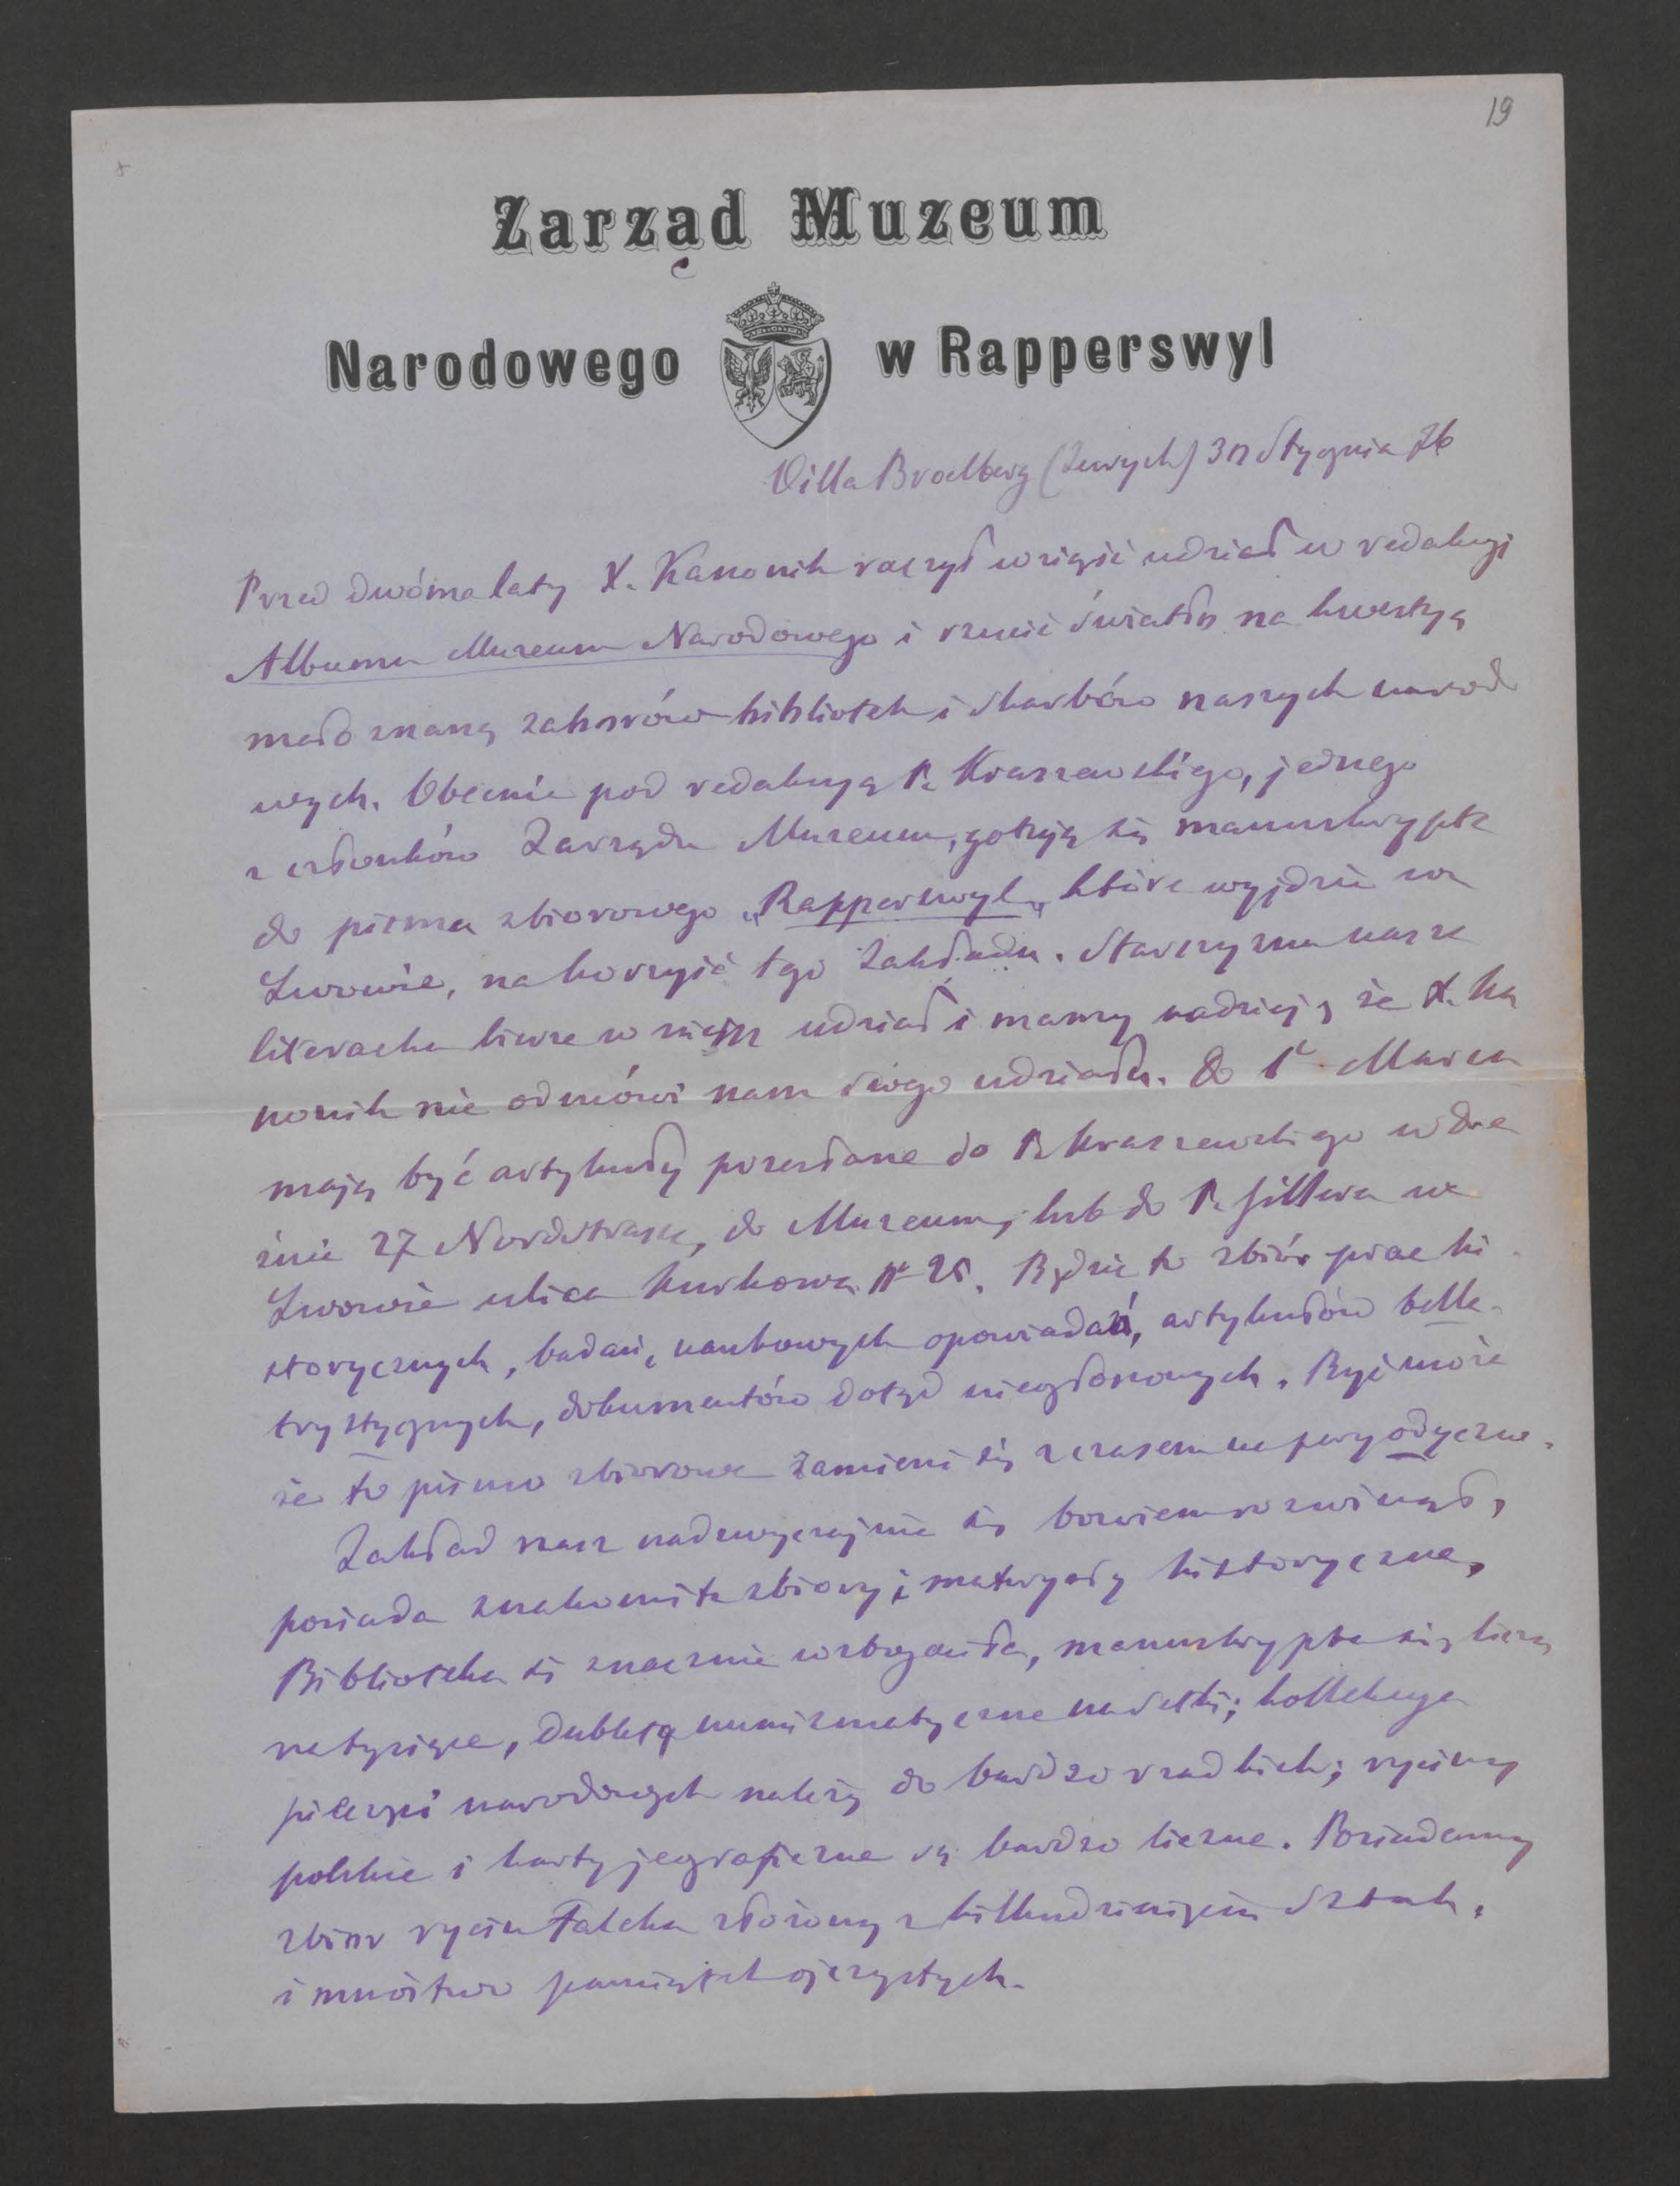 19
Zarząd Muzeum
Narodowego w Rapperswyl
Villa Broelberg (Zurych) 30 Stycznia 76
Przed dwóma laty X. Kanonik raczył wziąść udział w redakcyi
Albumu Muzeum Narodowego i rzucić światło na kwestyą
mało znaną zaborów bibliotek i skarbów naszych narodo
wych. Obecnie pod redakcyą P. Kraszewskiego, jednego
z członków Zarządu Muzeum, gotują się manuskrypta
do pisma zbiorowego „Rapperswyl„ które wyjdzie we
Lwowie, na korzyść tego Zakładu. Starszyzna nasza
literacka bierze w niem udział i mamy nadzieję że X. Ka
nonik nie odmówi nam swego udziału. Do 1º Marca
mają być artykuły przesłane do P. Kraszewskiego w Dre
znie 27 Nordstrasse, do Muzeum, lub do P. Gillera we
Lwowie ulica Kurkowa Nº 25. Będzie to zbiór prac hi
storycznych, badań, naukowych opowiadań, artykułów belle
trystycznych, dokumentów dotąd nieogłoszonych. Być może
że to pismo zbiorowe zamieni się z czasem na peryodyczne.
Zakład nasz nadzwyczajnie się bowiem rozwinął,
posiada znakomite zbiory i materyały historyczne,
Biblioteka się znacznie wzbogaciła, manuskrypta się liczą
na tysiące, dublety numizmatyczne na setki; kollekcya
pieczęci narodowych należy do bardzo rzadkich; ryciny
polskie i karty jeograficzne są bardzo liczne. Posiadamy
zbior rycin Falcka złożony z kilkudziesięciu Sztuk,
i mnóstwo pamiątek ojczystych.